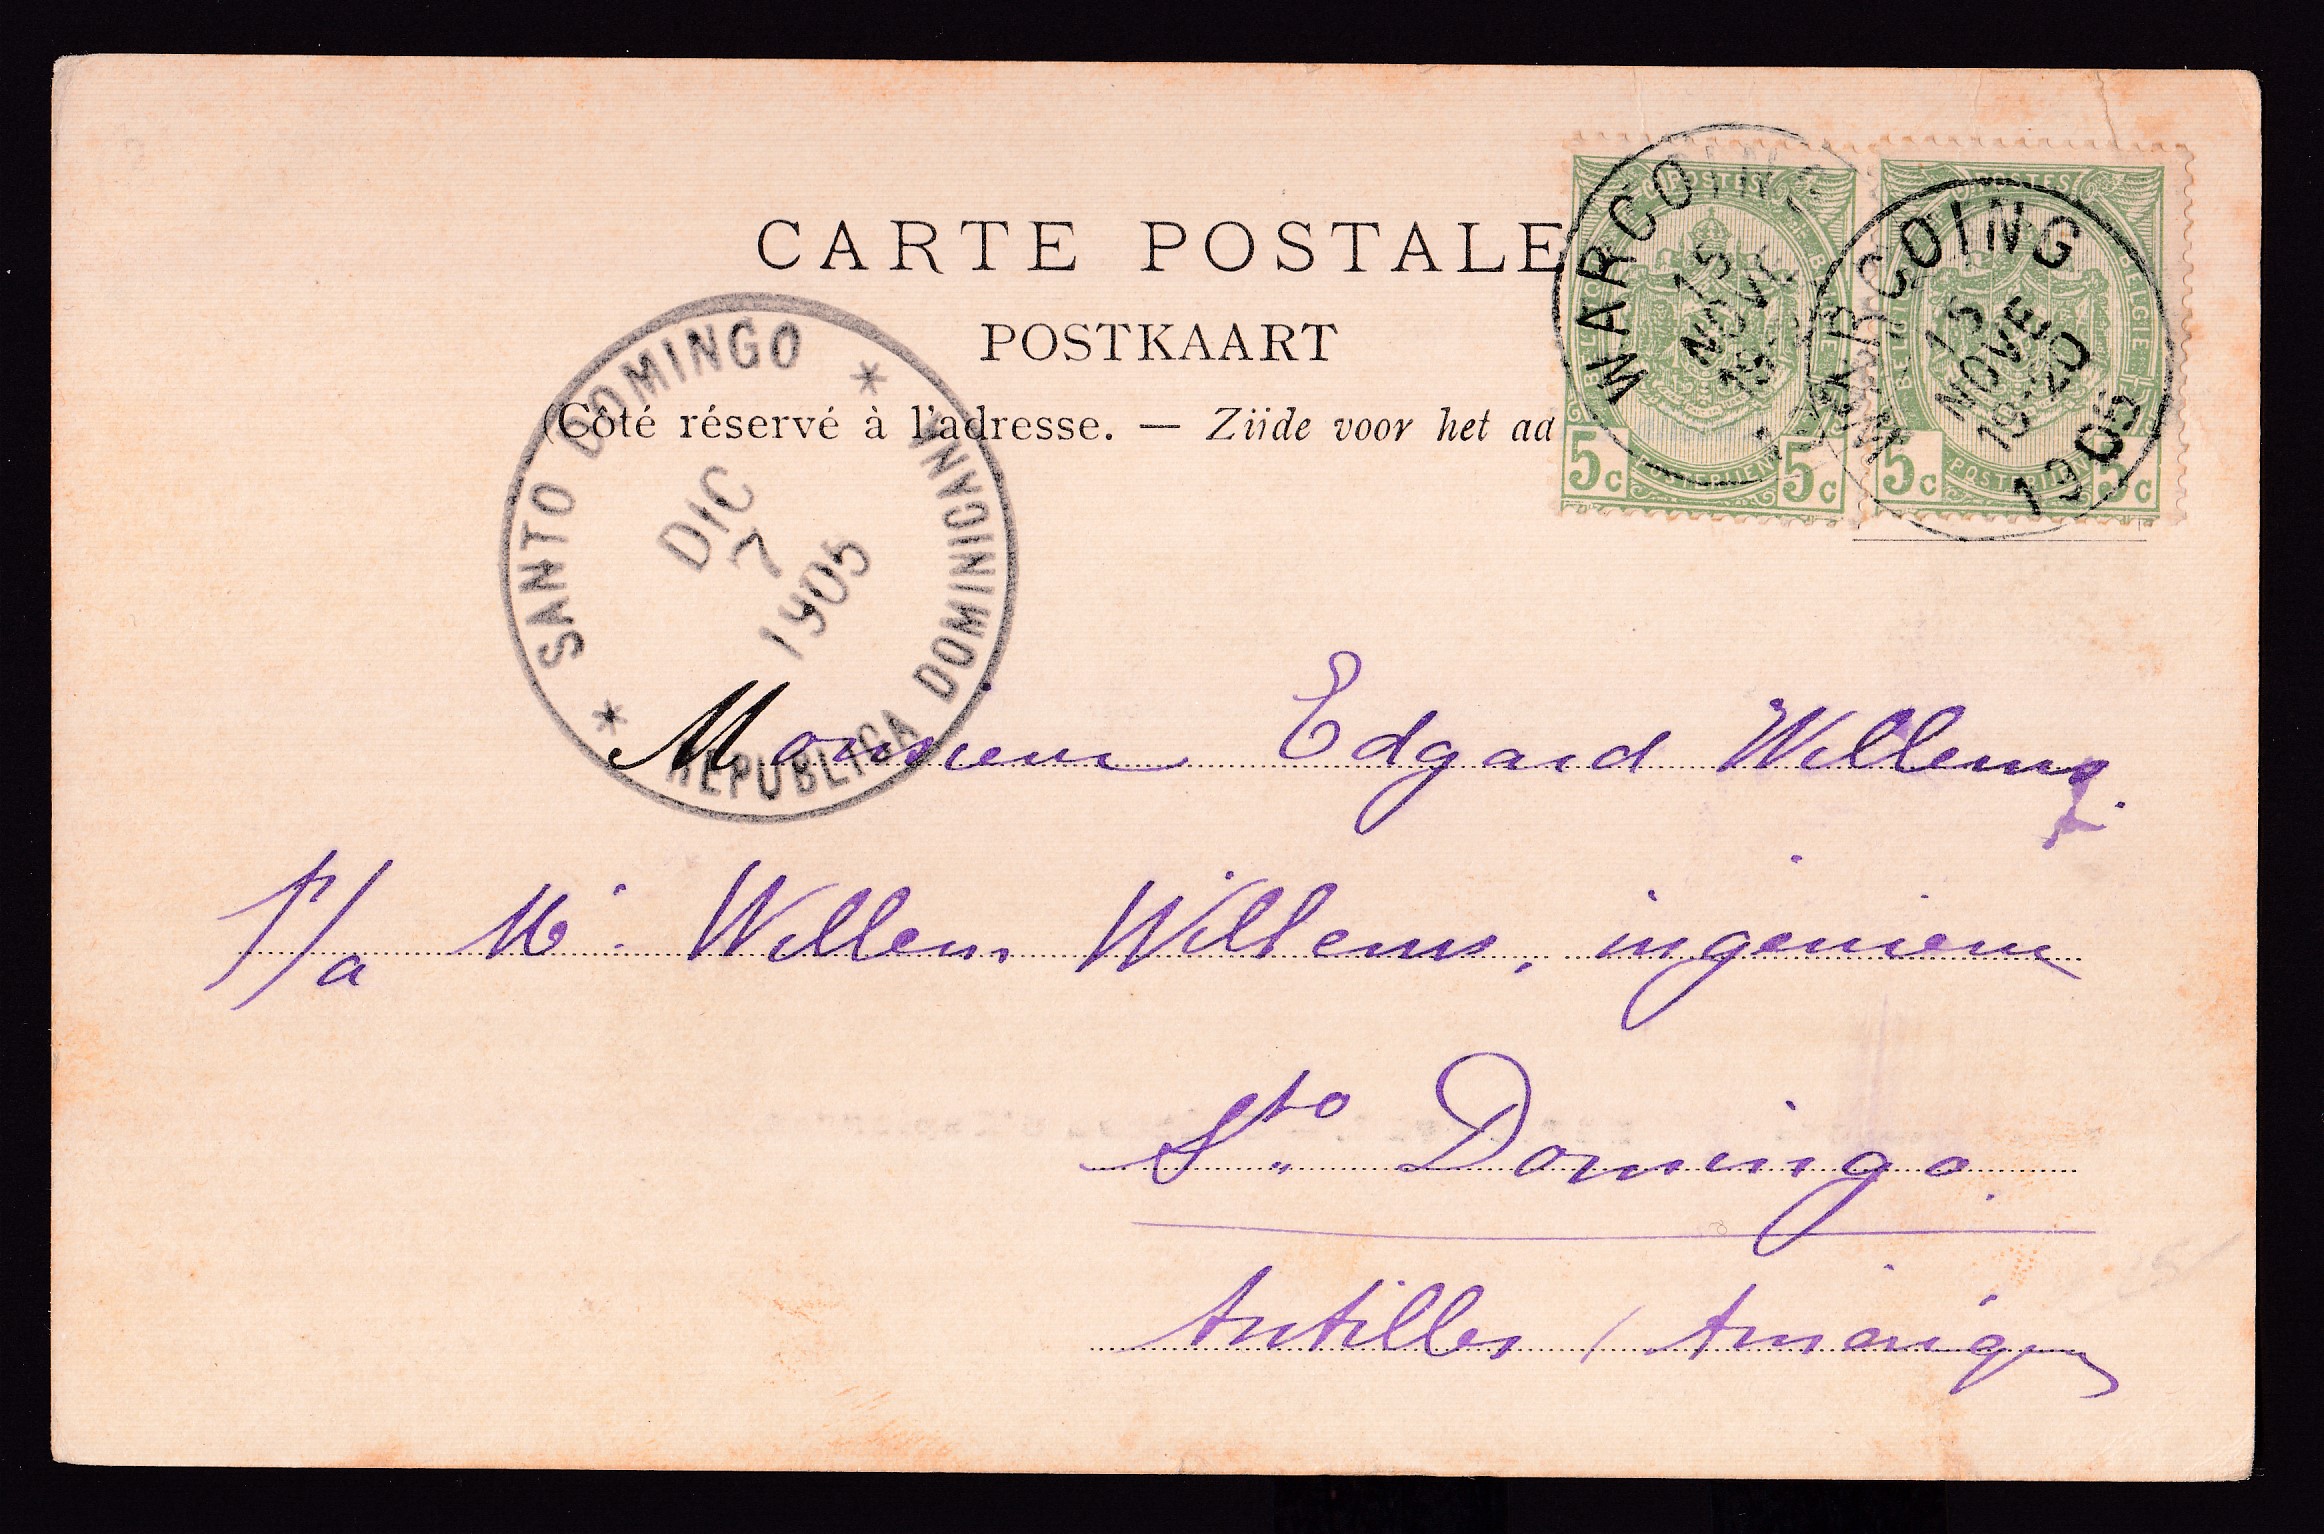 CARTE POSTALE
POSTKAART
(Côté réservé à l'adresse. — Zijde voor het ad
WARCOING
15
NOVE
19-
WARCOING
15
NOVE
19-20
1905
POSTES
5c 5c
POSTERIJEN
POSTES
BELGIE
5c 5c
POSTERIJEN
SANTO DOMINGO
DIC
7
1905
REPUBLICA DOMINICANA
Monsieur Edgard Willems.
p/a Mr. Willem Willems, ingenieur
Sto Domingo.
Antilles / Amérique